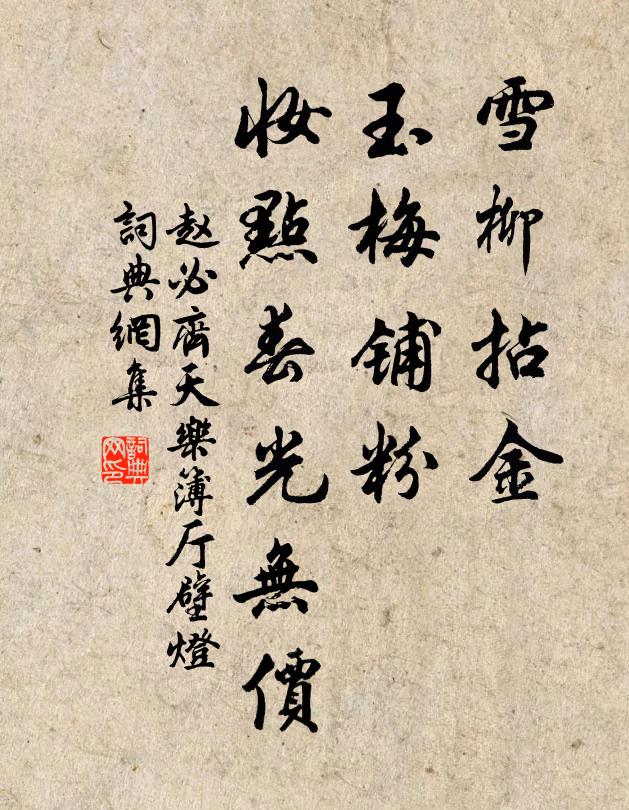 雪柳拈金
玉梅铺粉
妆點春光無價
赵必齊天樂簿厅壁燈
詞典網集
詞典網印